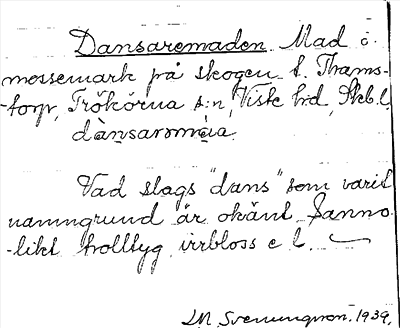 Dansaremaden. Mad i
mossemark på skogen t. Thams-
-torp, Frökörna s:n, Viske hd, Skb.l.
dànsarəmáia.
Vad slags "dans" som varit
namngrund är okänt. Sanno-
-likt trolltyg, irrbloss e l.
LM. Svenungsson. 1939.